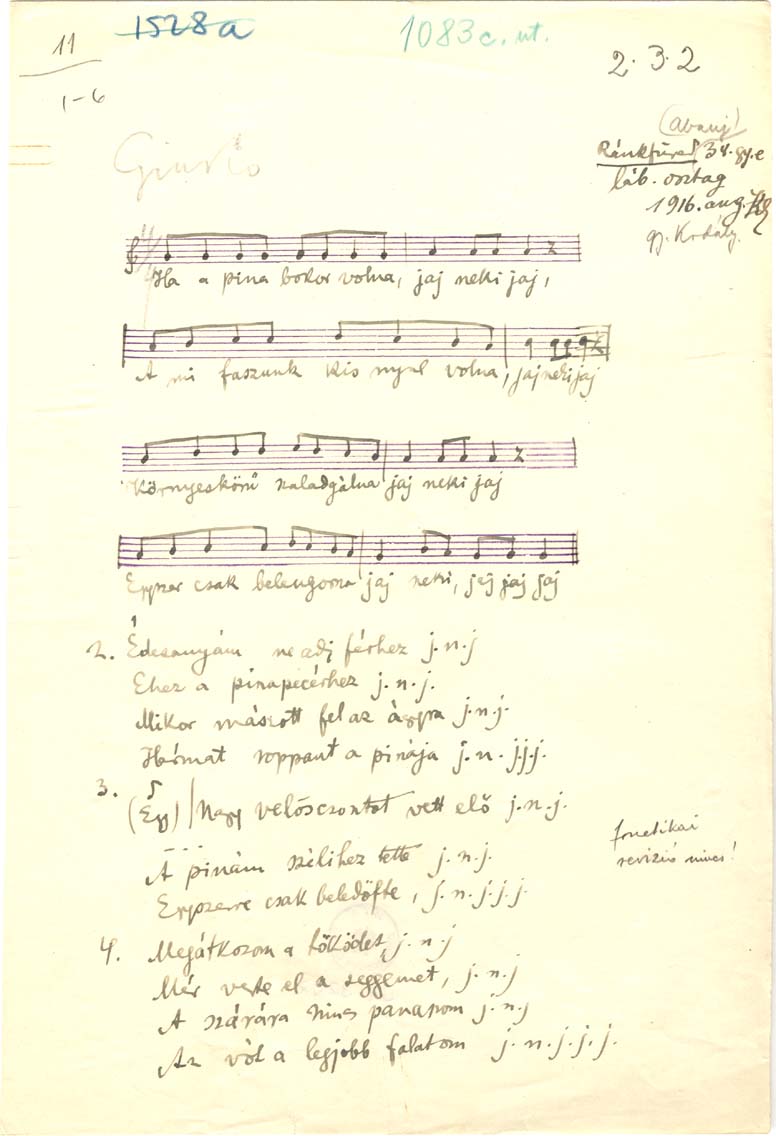 11
1-6
1528a
1083c. ut.
2.3.2
(Abauj)
Ránkfüred 34. gy.e
láb. osztag
1916. aug.
gy. Kodály.
Giusto
Ha a pina bokor volna, jaj neki jaj,
A mi faszunk kis nyul volna, jaj neki jaj
Környeskörü szaladgálna jaj neki jaj
Egyszer csak beleugorna jaj neki, jaj jaj jaj
2. Édesanyám ne adj férhez j.n.j
Ehez a pinapecérhez j.n.j.
Mikor mászott fel az ágyra j.n.j.
Hármat roppant a pinája j.n.j.j.j.
3. (Egy) Nagy velőscsontot vett elő j.n.j.
A pinám szélihez tette j.n.j.
Egyszerre csak beledöfte, j.n.j.j.j.
fonetikai
revizió nincs!
4. Megátkozom a tőködet, j.n.j
Mér verte el a seggemet, j.n.j
A szárára nincs panaszom j.n.j
Az vót a legjobb falatom j.n.j.j.j.